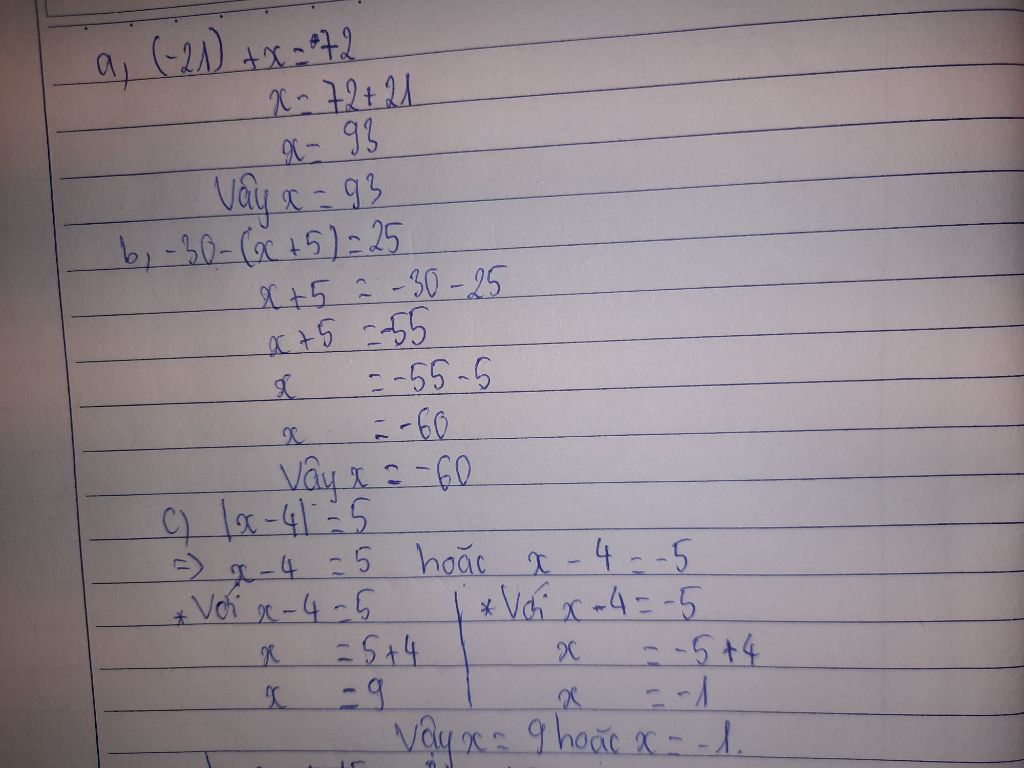 a, (-21) + x = 72
x = 72 + 21
x = 93
Vậy x = 93
b, -30 - (x + 5) = 25
x + 5 = -30 - 25
x + 5 = -55
x = -55 - 5
x = -60
Vậy x = -60
c) |x - 4| = 5
=> x - 4 = 5 hoặc x - 4 = -5
* Với x - 4 = 5 | * Với x - 4 = -5
x = 5 + 4 | x = -5 + 4
x = 9 | x = -1
Vậy x = 9 hoặc x = -1.